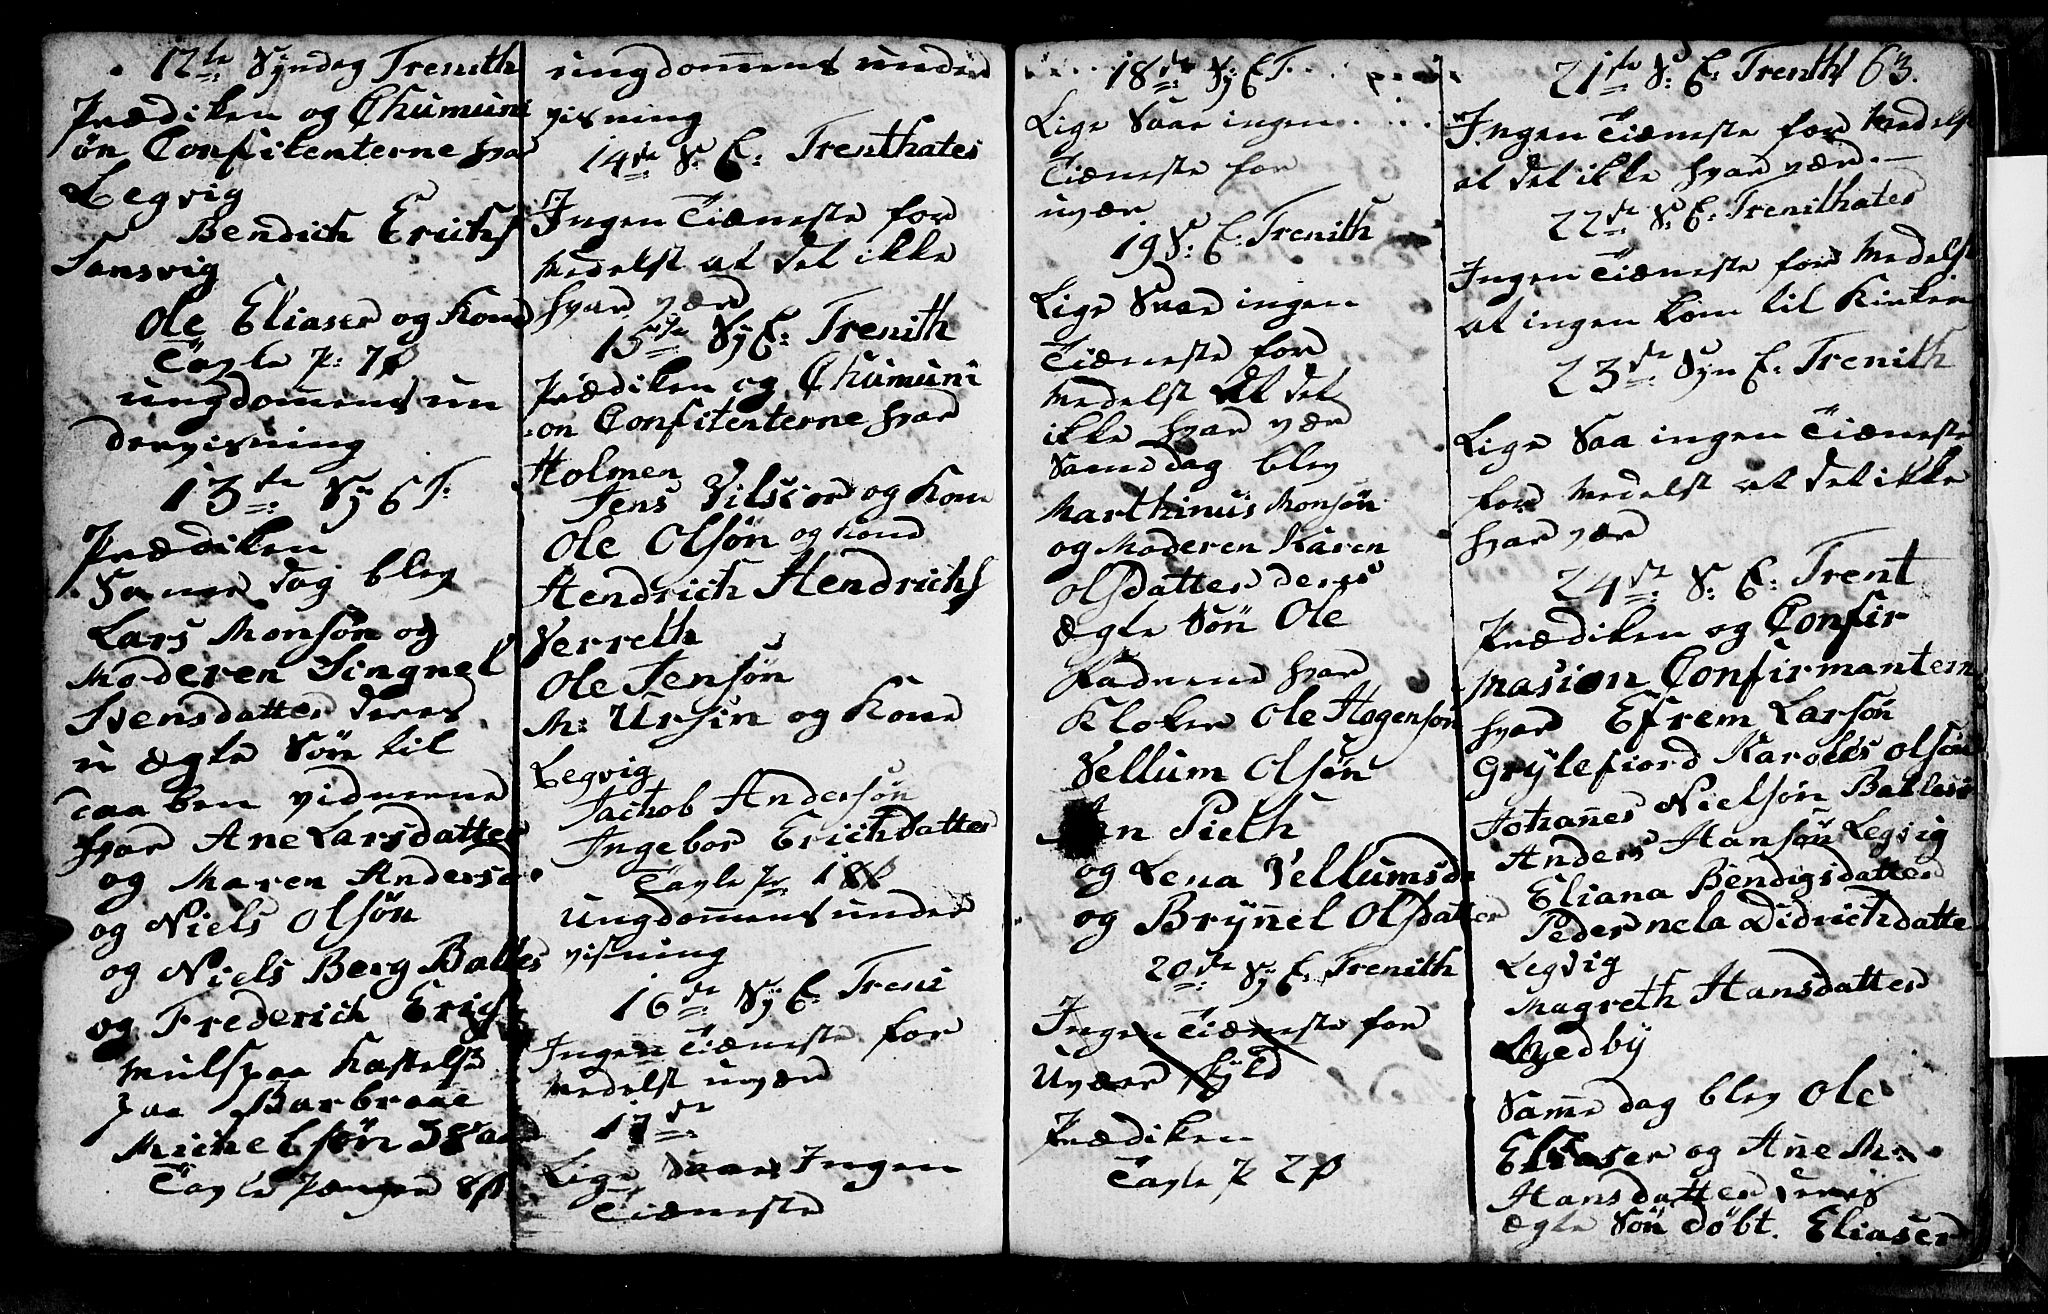 12te Syndag Trenith
Prædiken og Chumuni
øn Confitenterne hvar
Legvig
Bendich Erichs
Tansvig
Ole Eliaser og Kone
Tavle P: 7
ungdommens un
dervisning
13de Sy E T:
Prædiken
Samme dag blev
Lars Monsøn og
Moderen Singnel
Svensdatter deres
u ægte Søn til
daaben vidnerne
hvar Ane Larsdatter
og Maren Anders
og Niels Olsøn
og Niels Berg
og Frederich Erigs
Michelsøn 38
Tavle Penger 8
ungdommens under
visning
14de S: E: Trenthates
Ingen Tiæneste for
Medelst at det ikke
hvar vær
15de Sy E: Trenith
Prædiken og Chumuni
on Confitenterne hvar
Holmen
Jens og Kone
Ole Olsøn og Kone
Hendrich Hendrichs
Verreth
Ole Jensøn
M: Ursin og Kone
Legvig
Jachob Andersøn
Ingebor Erichdatter
Tavle P 18
Ungdommens under
visning
16de Sy E: Treni
Ingen Tiæneste for
Medelst uvær
17de
Lige saar Ingen
Tiæneste
18de Sy E T.
Lige Saar ingen
Tiæneste for
uvær
19 S: E: Trenith
Lige Saar ingen
Tiæneste for
Medelst at det
ikke hvar vær
Samedag blev
Marthinus Monsøn
og Moderen Karen
Olsdatter deres
Ægte Søn Ole
Fadrene hvar
Kloker Ole Hogensøn
Vellum Olsøn
Pieth
og Lena Vellumsd
og Brynel Olsdatter
20de Sy E: Trenith
Ingen Tiæneste for
Uvæer skyld
Prædiken
Tavle P 2
21de S: E: Trenth 63.
Ingen Tiæneste for Medelst
at det ikke hvar vær
22de S E: Trenithates
Ingen Tiæneste for Medelst
at ingen kom til Kirken
23de Syn E: Trenith
Lige Saa ingen Tiæneste
for Medelst at det ikke
hvar vær
24de S: E: Trent
Prædiken og Confir
masion Confirmantern
hvar Efrem Larsøn
Gryllefiord Karolus Olsøn
Johannes Nielsøn
Anders Hansøn Legvig
Eliana Bendigsdatter
Pedernela Didrichdatte
Legvig
Magreth Hansdatter
Samme dag blev Ole
Eliaser og Ane M:
Hansdatter deres
ægte Søn døbt. Eliaser